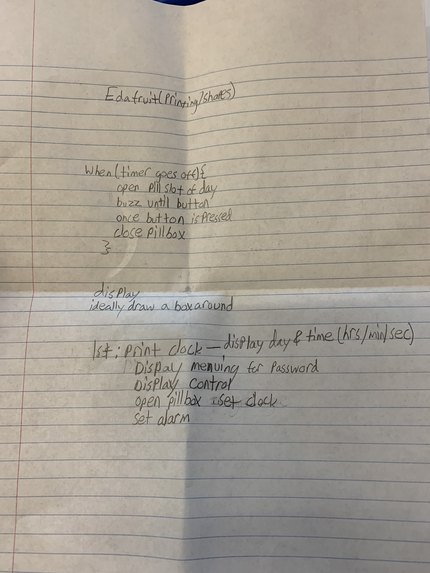 Edafruit(Printing/shapes)
When(timer goes off){
open pill slot of day
buzz until button
once button is pressed
close pillbox
}
display
ideally draw a box around
1st: print clock — display day & time (hrs/min/sec)
Display menuing for password
Display control
open pillbox set clock
set alarm